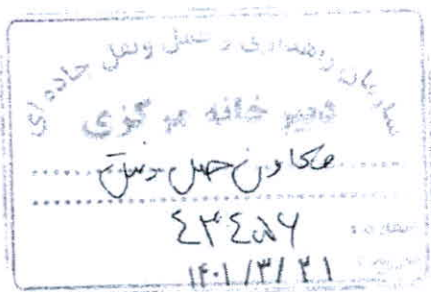 سازمان راهداری و حمل ونقل جاده ای
دبیر خانه مرکزی
معاون حمل ونقل
شماره: ٤٣٤٥٧٦
۱۴۰۱/۳/۳۱